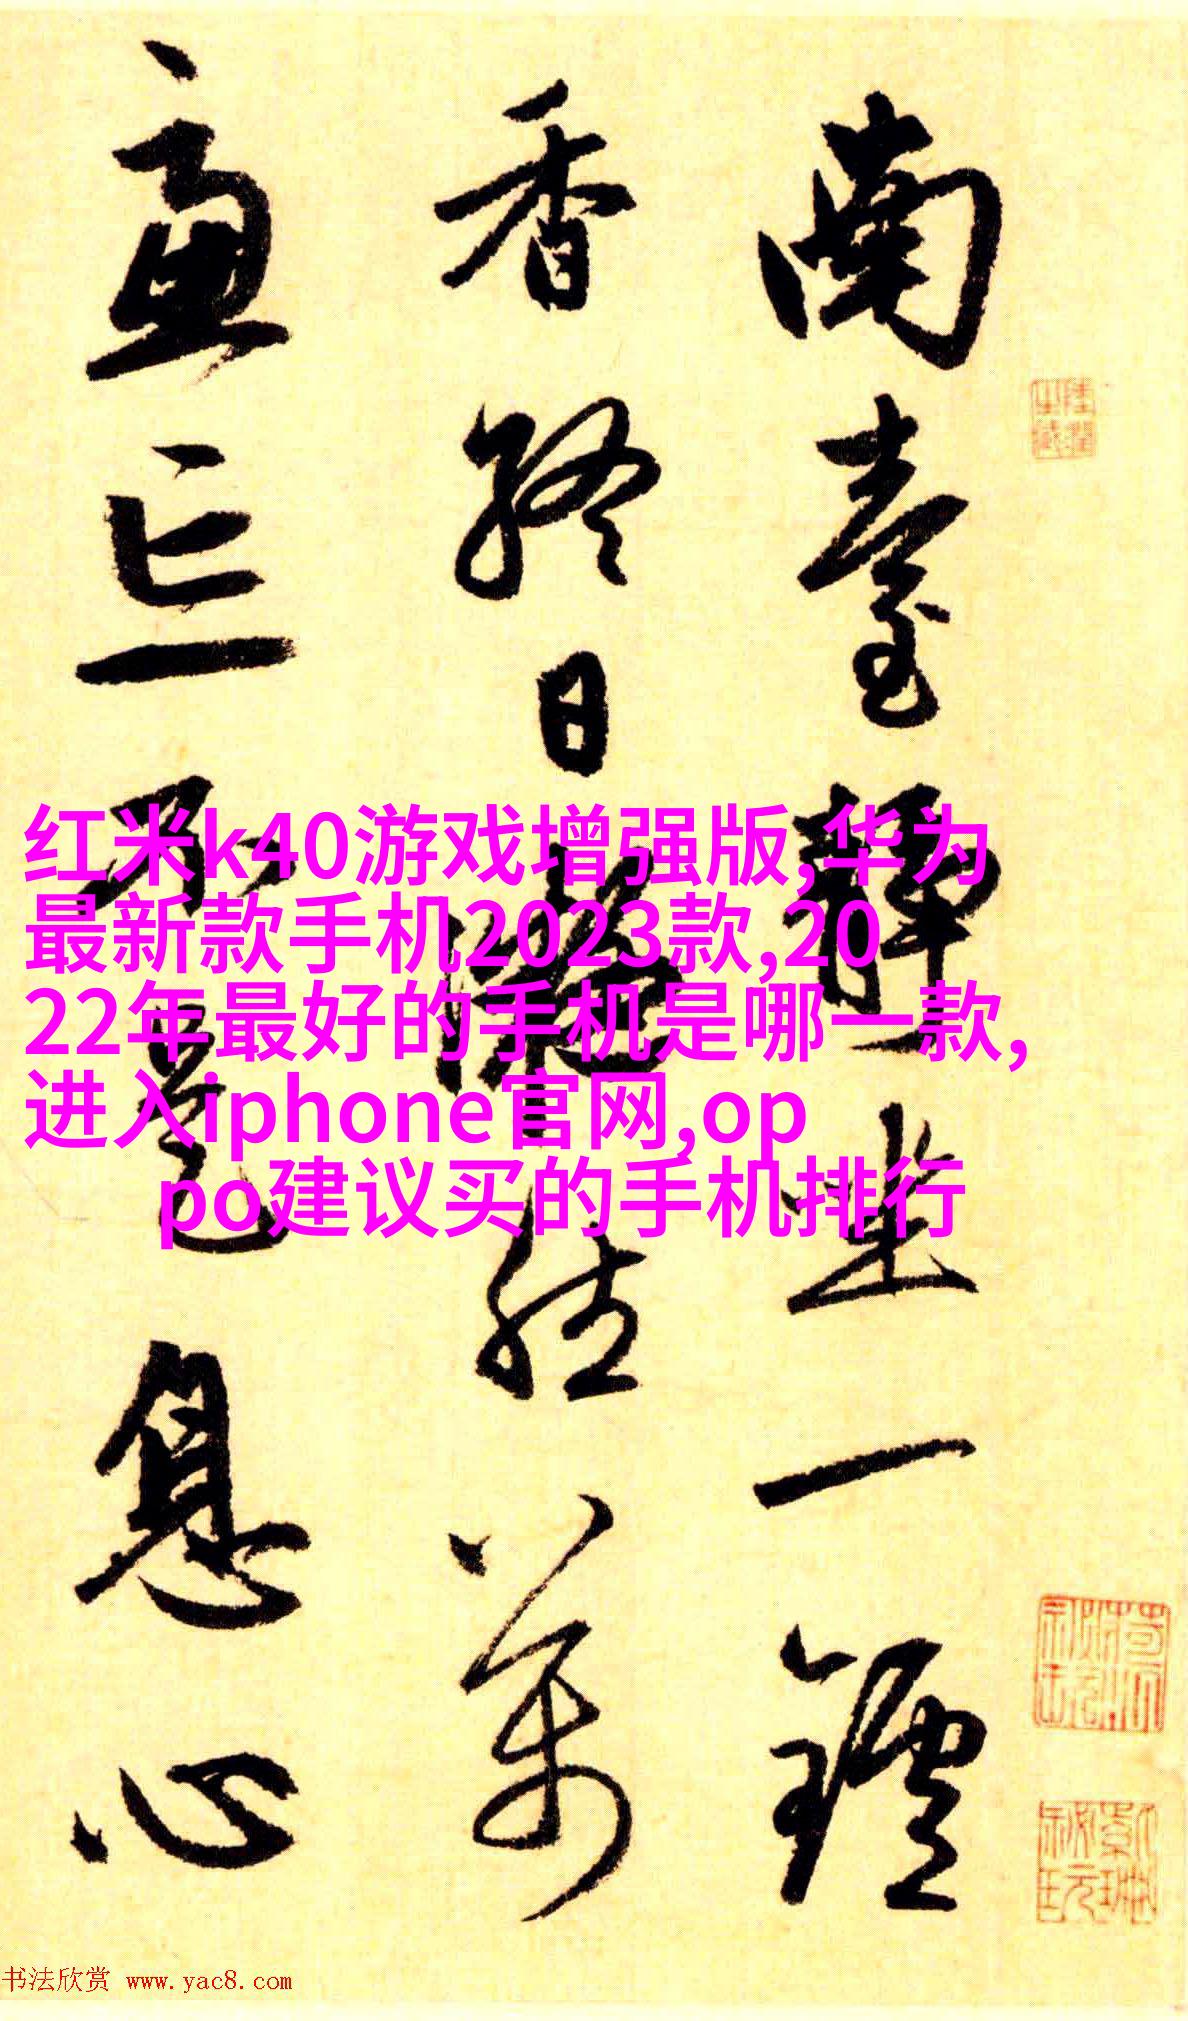 南臺靜坐一鑪
香終日凝然萬
慮忘不是息心
红米k40游戏增强版,华为
最新款手机2023款,20
22年最好的手机是哪一款,
进入iphone官网,op
po建议买的手机排行
书法欣赏 www.yac8.com